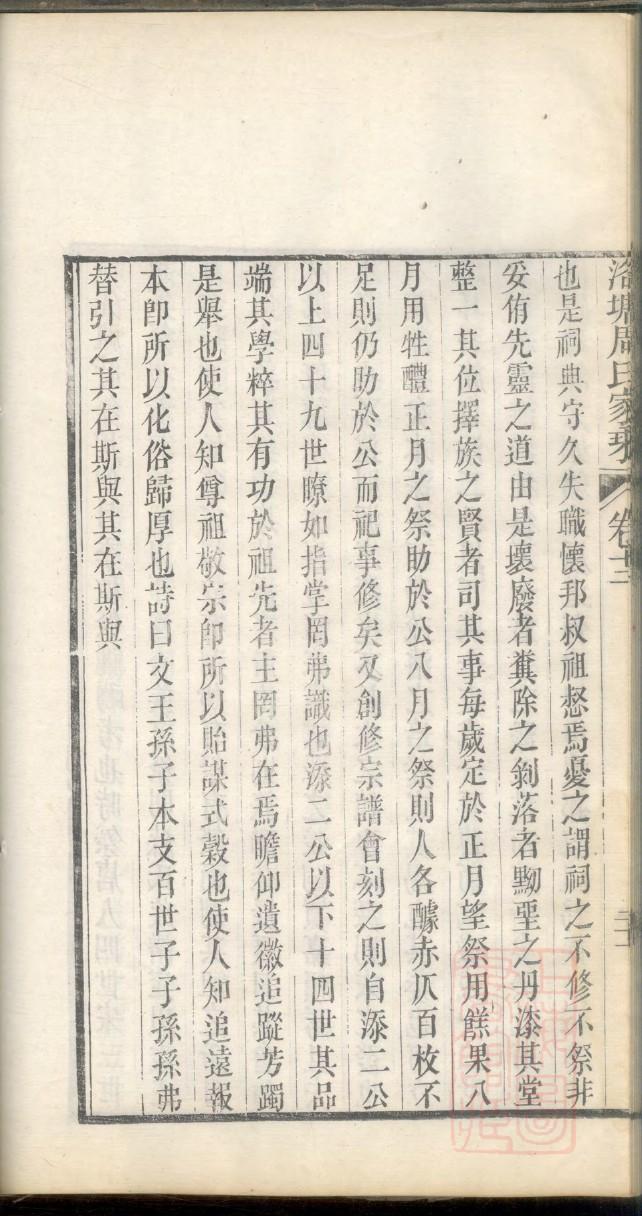 洛塘周氏家乘 卷十三
也是祠典守久失職懷邦叔祖惄焉憂之謂祠之不修不祭非
妥侑先靈之道由是壞廢者糞除之剝落者黝堊之丹漆其堂
整一其位擇族之賢者司其事每歲定於正月望祭用餻果八
月用牲醴正月之祭助於公八月之祭則人各醵赤仄百枚不
足則仍助於公而祀事修矣又創修宗譜會刻之則自漛二公
以上四十九世瞭如指掌罔弗識也漛二公以下十四世其品
端其學粹其有功於祖先者主罔弗在焉瞻仰遺徽追蹤芳躅
是舉也使人知尊祖敬宗卽所以貽謀式穀也使人知追遠報
本卽所以化俗歸厚也詩曰文王孫子本支百世子子孫孫弗
替引之其在斯與其在斯與